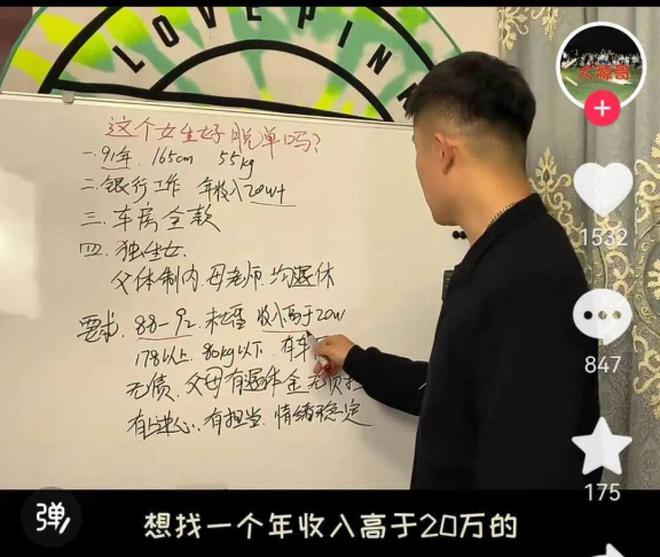 LOVE PIN
这个女生好脱单吗?
一.91年. 165cm 55kg
二.银行工作. 年收入20W+
三.车房全款
四.独生女.
父体制内.母老师.均退休
要求.88-92.未婚 收入高于20W
178以上.80kg以下.有车
无债.父母有退休金
有上进心.有担当.情绪稳定
大源哥
1532
847
175
弹
想找一个年收入高于20万的